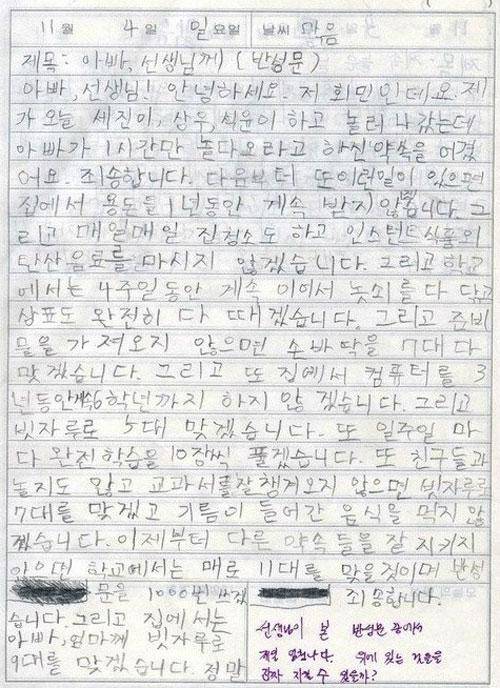 11월 4일 일요일 날씨 맑음
제목: 아빠, 선생님께 (반성문)
아빠, 선생님! 안녕하세요. 저 회민인데요. 제
가 오늘 세진이, 상우, 식윤이 하고 놀러 나갔는데
아빠가 1시간만 놀다오라고 하신 약속을 어겼
어요. 죄송합니다. 다음부터 또 이런일이 있으면
집에서 용돈을 1년동안 계속 받지 않겠습니다. 그
리고 매일매일 집청소도 하고 인스턴트식품의
탄산음료를 마시지 않겠습니다. 그리고 학교
에서는 4주일동안 계속 이어서 놋쇠를 다 닦고
상표도 완전히 다 떼겠습니다. 그리고 준비
물을 가져오지 않으면 손바닥을 7대 다
맞겠습니다. 그리고 또 집에서 컴퓨터를 3
년동안 6학년까지 하지 않겠습니다. 그리고
빗자루로 5대 맞겠습니다. 또 일주일 마
다 완전학습을 10장씩 풀겠습니다. 또 친구들과
놀지도 않고 교과서를 잘 챙겨오지 않으면 빗자루로
7대를 맞겠고 기름이 들어간 음식을 먹지 않
겠습니다. 이제부터 다른 약속들을 잘 지키지
않으면 학교에서는 매로 11대를 맞을것이며 반성
문을 1000번 쓰겠
습니다. 그리고 집에서는
아빠, 엄마께 빗자루로
9대를 맞겠습니다. 정말
죄송합니다.
선생님이 본 반성문 중에
제일 위에 있는 것들을
과자 지킬 수 있을까?